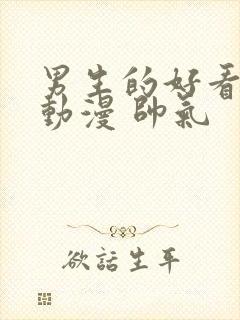 男生的好看
動漫 帥氣
欲話生平